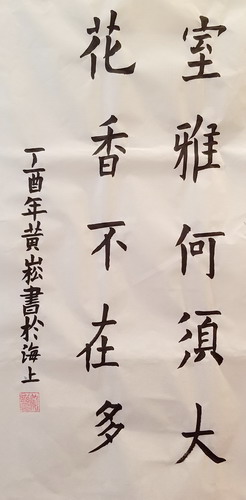 室雅何須大
花香不在多
丁酉年黄崧書於海上